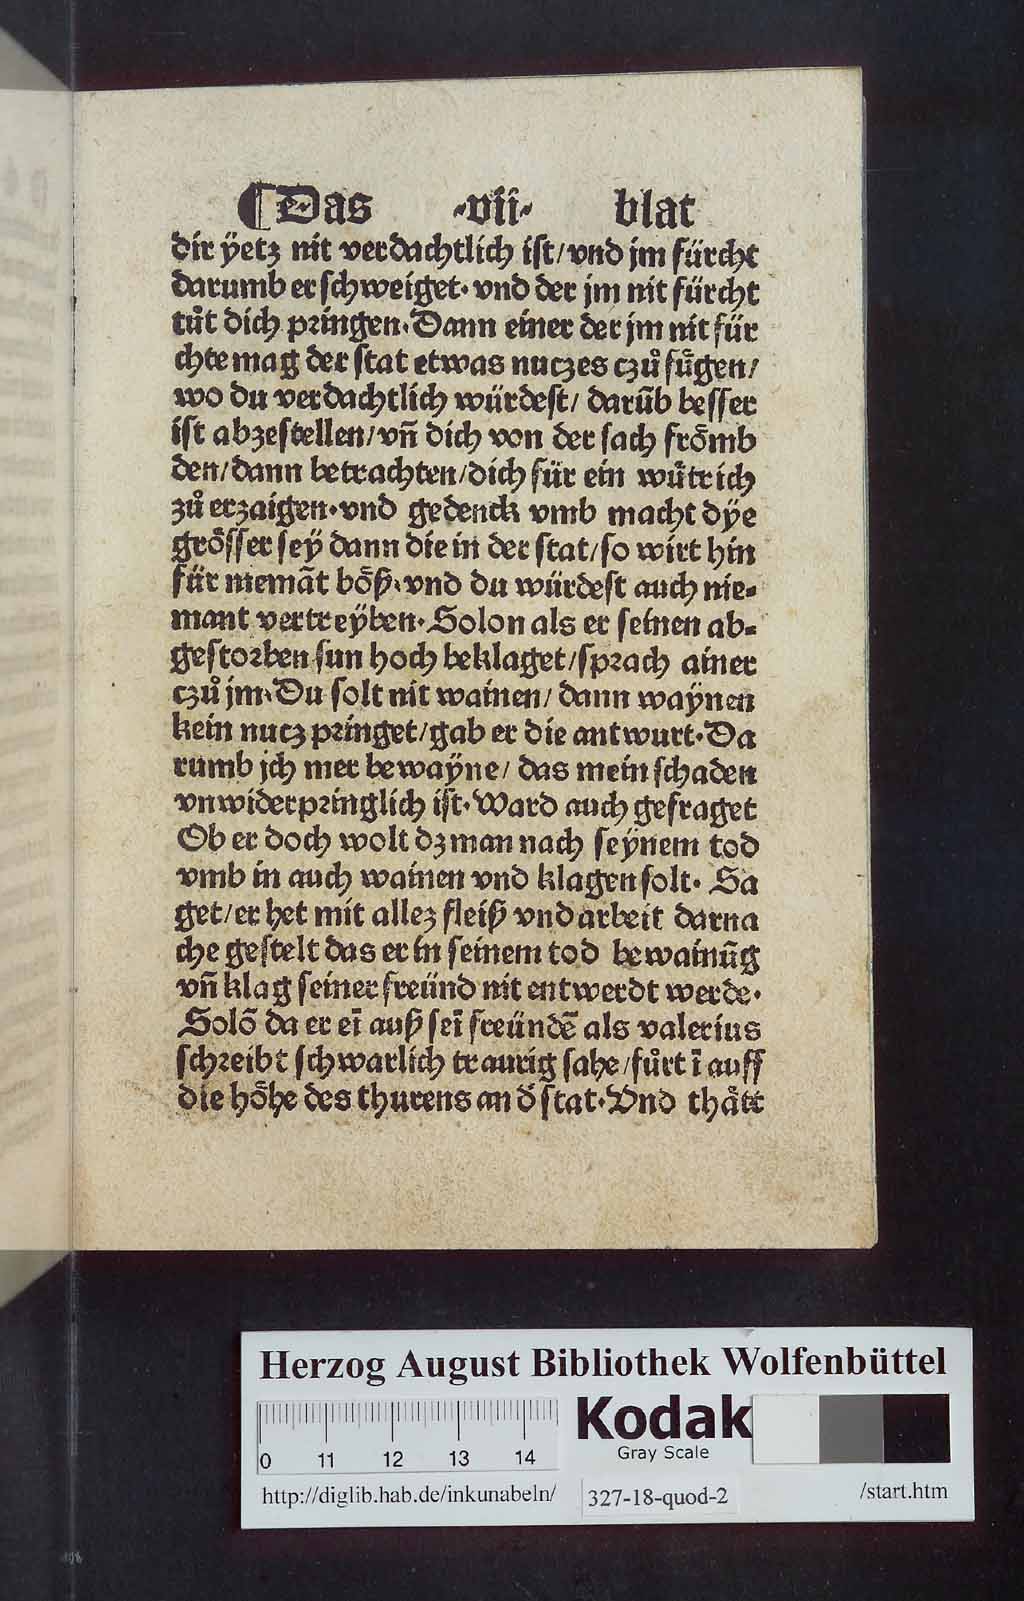 ¶ Das ·vii· blat
dir ÿetz nit verdachtlich ist/vnd jm fürcht
darumb er schweiget· vnd der jm nit fürcht
tůt dich pringen·Dann einer der jm nit für
chte mag der stat etwas nuczes czů fu̇gen/
wo du verdachtlich würdest/ darūb besser
ist abzestellen/vn̄ dich von der sach frömb
den/dann betrachten/dich für ein wütrich
zů erzaigen·vnd gedenck vmb macht dÿe
grösser seÿ dann die in der stat/so wirt hin
für niemāt böß·vnd du würdest auch nie⸗
mant vertreÿben·Solon als er seinen ab⸗
gestorben sun hoch beklaget/sprach ainer
czů jm·Du solt nit wainen/ dann waÿnen
kein nucz pringet/gab er die antwurt·Da
rumb jch mer bewaÿne/ das mein schaden
vnwiderpringlich ist·Ward auch gefraget
Ob er doch wolt dz man nach seÿnem tod
vmb in auch wainen vnd klagen solt· Sa
get/er het mit allez fleiß vnd arbeit darna
che gestelt das er in seinem tod bewainūg
vn̄ klag seiner freünd nit entwerdt werde·
Solō da er eī auß seī freündē als valerius
schreibt schwarlich traurig sahe/fůrt ī auff
die höhe des thurens an d̄ stat·Vnd thått
Herzog August Bibliothek Wolfenbüttel
0 11 12 13 14
Kodak
Gray Scale
http://diglib.hab.de/inkunabeln/ 327-18-quod-2 /start.htm